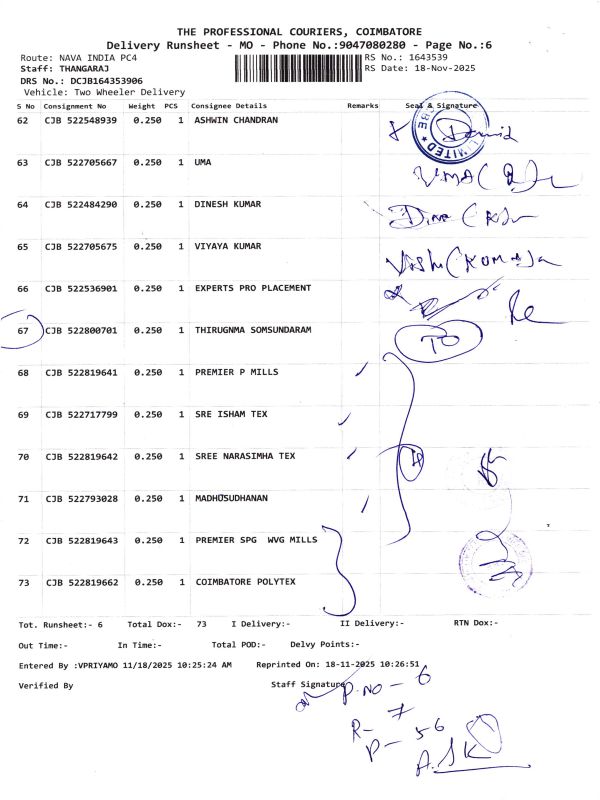 THE PROFESSIONAL COURIERS, COIMBATORE
Delivery Runsheet - MO - Phone No.:9047080280 - Page No.:6
Route: NAVA INDIA PC4 RS No.: 1643539
Staff: THANGARAJ RS Date: 18-Nov-2025
DRS No.: DCJB164353906
Vehicle: Two Wheeler Delivery
S No Consignment No Weight PCS Consignee Details Remarks Seal & Signature
62 CJB 522548939 0.250 1 ASHWIN CHANDRAN
63 CJB 522705667 0.250 1 UMA
64 CJB 522484290 0.250 1 DINESH KUMAR
65 CJB 522705675 0.250 1 VIYAYA KUMAR
66 CJB 522536901 0.250 1 EXPERTS PRO PLACEMENT
67 CJB 522800701 0.250 1 THIRUGNMA SOMSUNDARAM TO
68 CJB 522819641 0.250 1 PREMIER P MILLS
69 CJB 522717799 0.250 1 SRE ISHAM TEX
70 CJB 522819642 0.250 1 SREE NARASIMHA TEX
71 CJB 522793028 0.250 1 MADHUSUDHANAN
72 CJB 522819643 0.250 1 PREMIER SPG WVG MILLS
73 CJB 522819662 0.250 1 COIMBATORE POLYTEX
Tot. Runsheet:- 6 Total Dox:- 73 I Delivery:- II Delivery:- RTN Dox:-
Out Time:- In Time:- Total POD:- Delvy Points:-
Entered By :VPRIYAMO 11/18/2025 10:25:24 AM Reprinted On: 18-11-2025 10:26:51
Verified By Staff Signature
P.NO - 6
R- 7
P- 56